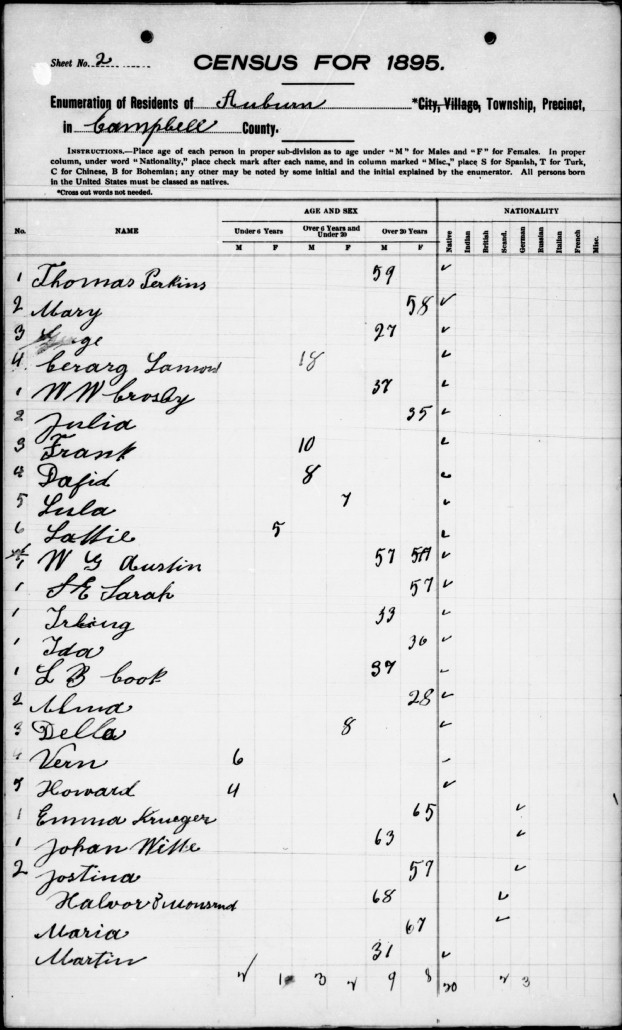 Sheet No. 2
CENSUS FOR 1895.
Enumeration of Residents of Auburn *City, Village, Township, Precinct,
in Campbell County.
INSTRUCTIONS.—Place age of each person in proper sub-division as to age under "M" for Males and "F" for Females. In proper
column, under word "Nationality," place check mark after each name, and in column marked "Misc., place S for Spanish, T for Turk,
C for Chinese, B for Bohemian; any other may be noted by some initial and the initial explained by the enumerator. All persons born
in the United States must be classed as natives.
*Cross out words not needed.
AGE AND SEX NATIONALITY
No. NAME Under 6 Years Over 6 Years and Under 20 Over 20 Years Native Indian British Scand. German Russian Italian French Misc.
M F M F M F
1 Thomas Perkins 59 ✓
2 Mary 58 ✓
3 27 ✓
4 18 ✓
1 W W Crosby 37 ✓
2 Julia 35 ✓
3 Frank 10 ✓
4 Dafid 8 ✓
5 Lula 7 ✓
6 Lattie 5 ✓
1 W G Austin 57 ✓
1 S E Sarah 57 ✓
1 Irbing 33 ✓
1 Ida 36 ✓
1 L B Cook 37 ✓
2 Alma 28 ✓
3 Della 8 ✓
4 Vern 6 ✓
5 Howard 4 ✓
1 Emma Krueger 65 ✓
1 Johan Witte 63 ✓
2 Jostina 57 ✓
Halvor 68 ✓
Maria 67 ✓
Martin 31 ✓
2 1 3 2 9 8 20 2 3